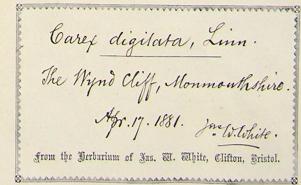 Carex digitata, Linn.
The Wynd Cliff, Monmouthshire.
Apr. 17. 1881.
Jas. W. White.
From the Herbarium of Jas. W. White, Clifton, Bristol.